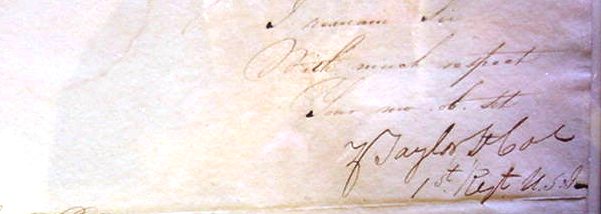 I remain Sir
With much respect
Your mo. ob. St
Z Taylor Lt Col
1st Regt U.S. I